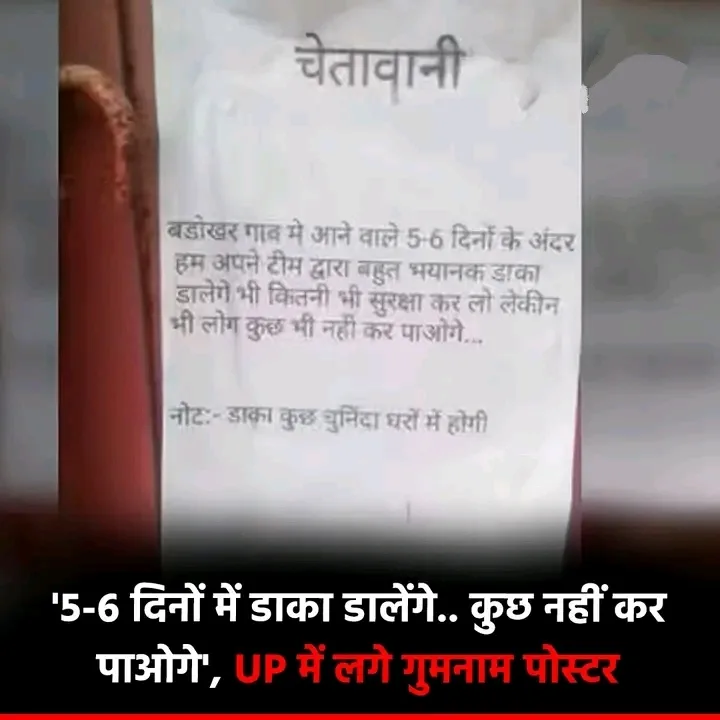 चेतावानी
बडोखर गाव मे आने वाले 5-6 दिनों के अंदर
हम अपने टीम द्वारा बहुत भयानक डाका
डालेगे भी कितनी भी सुरक्षा कर लो लेकीन
भी लोग कुछ भी नही कर पाओगे...
नोट:- डाका कुछ चुनिंदा घरों में होगी
'5-6 दिनों में डाका डालेंगे.. कुछ नहीं कर
पाओगे', UP में लगे गुमनाम पोस्टर